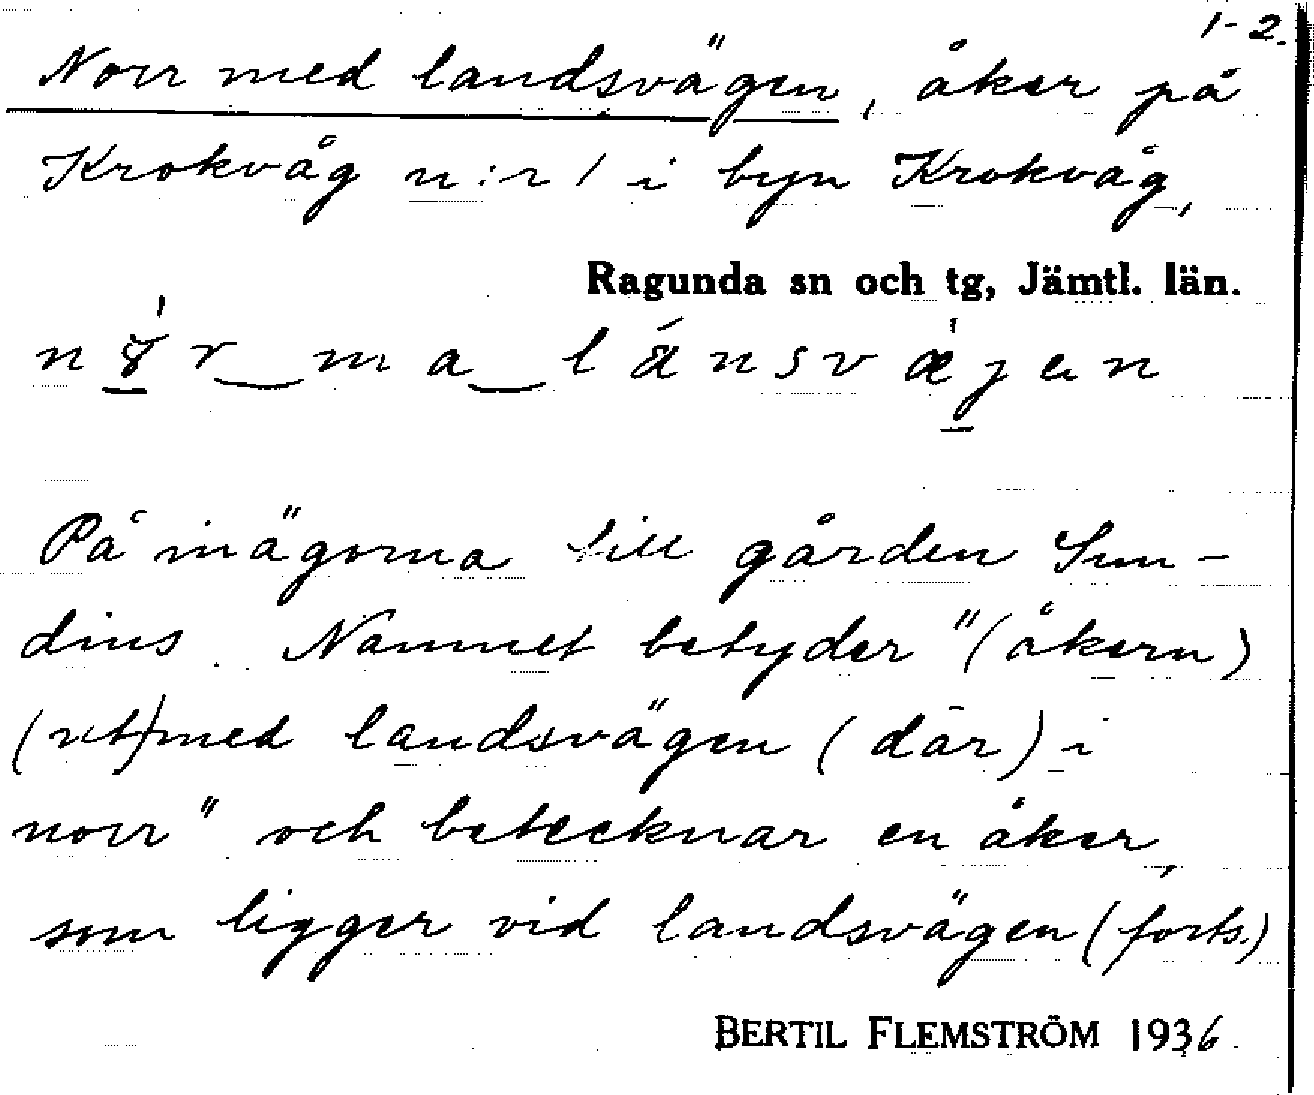 1-2.
Norr med landsvägen, åker på
Krokvåg n:r 1 i byn Krokvåg,
Ragunda sn och tg, Jämtl. län.
På inägorna till gården Sun-
dins. Namnet betyder "(åkern)
(ut)med landsvägen (där) i
norr" och betecknar en åker,
som ligger vid landsvägen (forts.)
BERTIL FLEMSTRÖM 1936